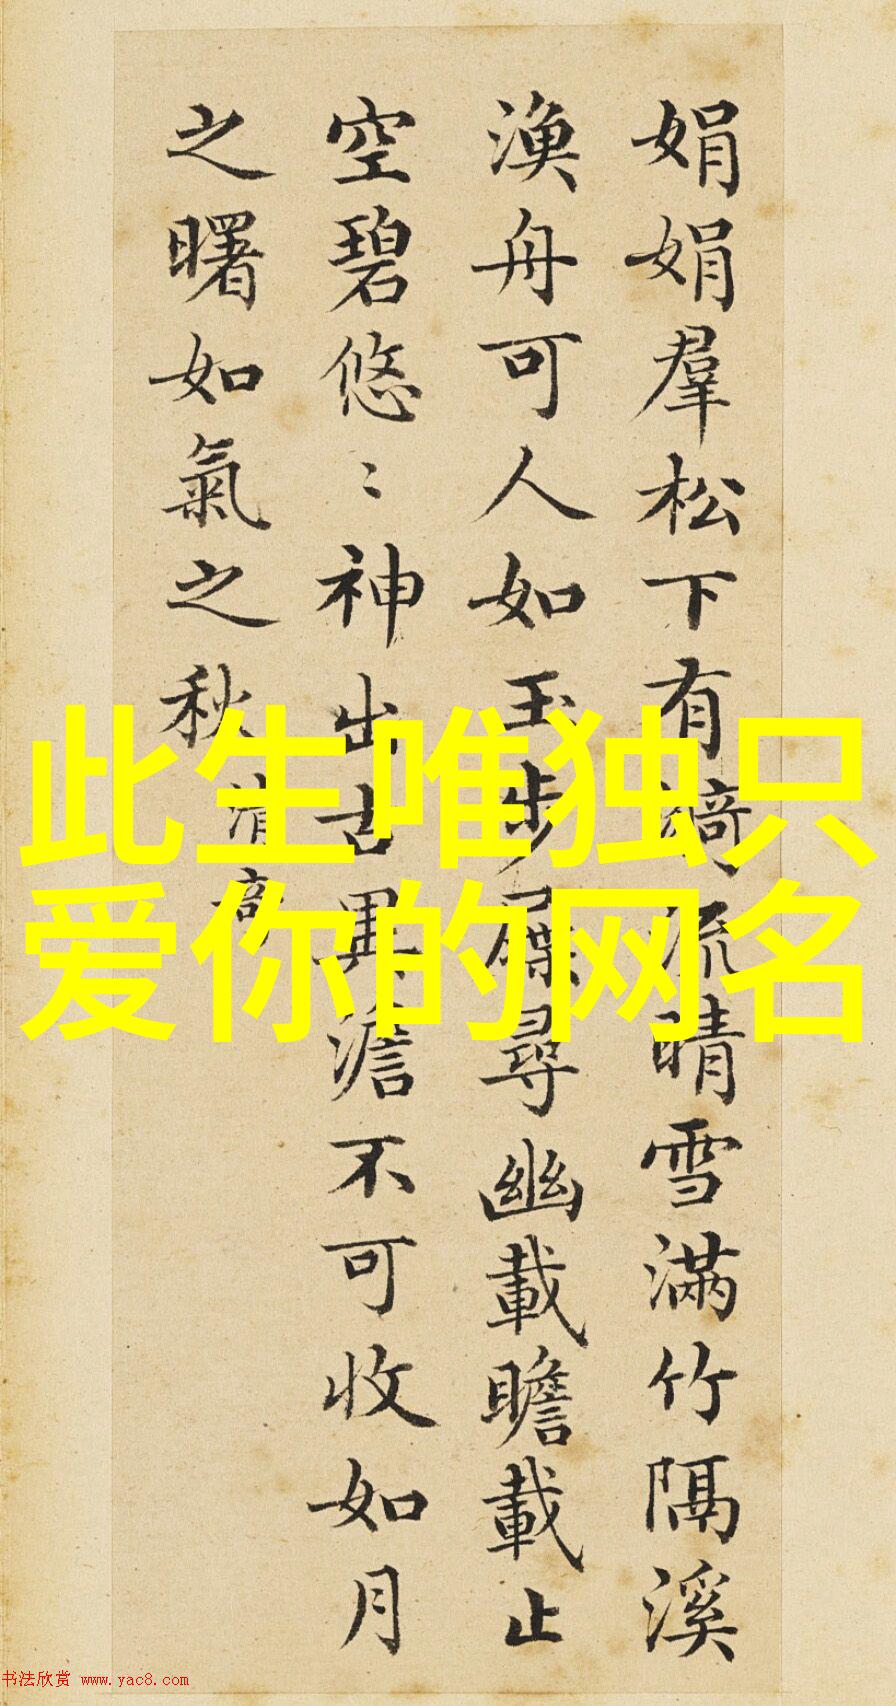 娟娟羣松下有漪流晴雪滿竹隔溪
漁舟可人如玉步屧尋幽載瞻載止
空碧悠〻神出古異澹不可收如月
之曙如氣之秋 清奇
此生唯独只
爱你的网名
书法欣赏 www.yac8.com